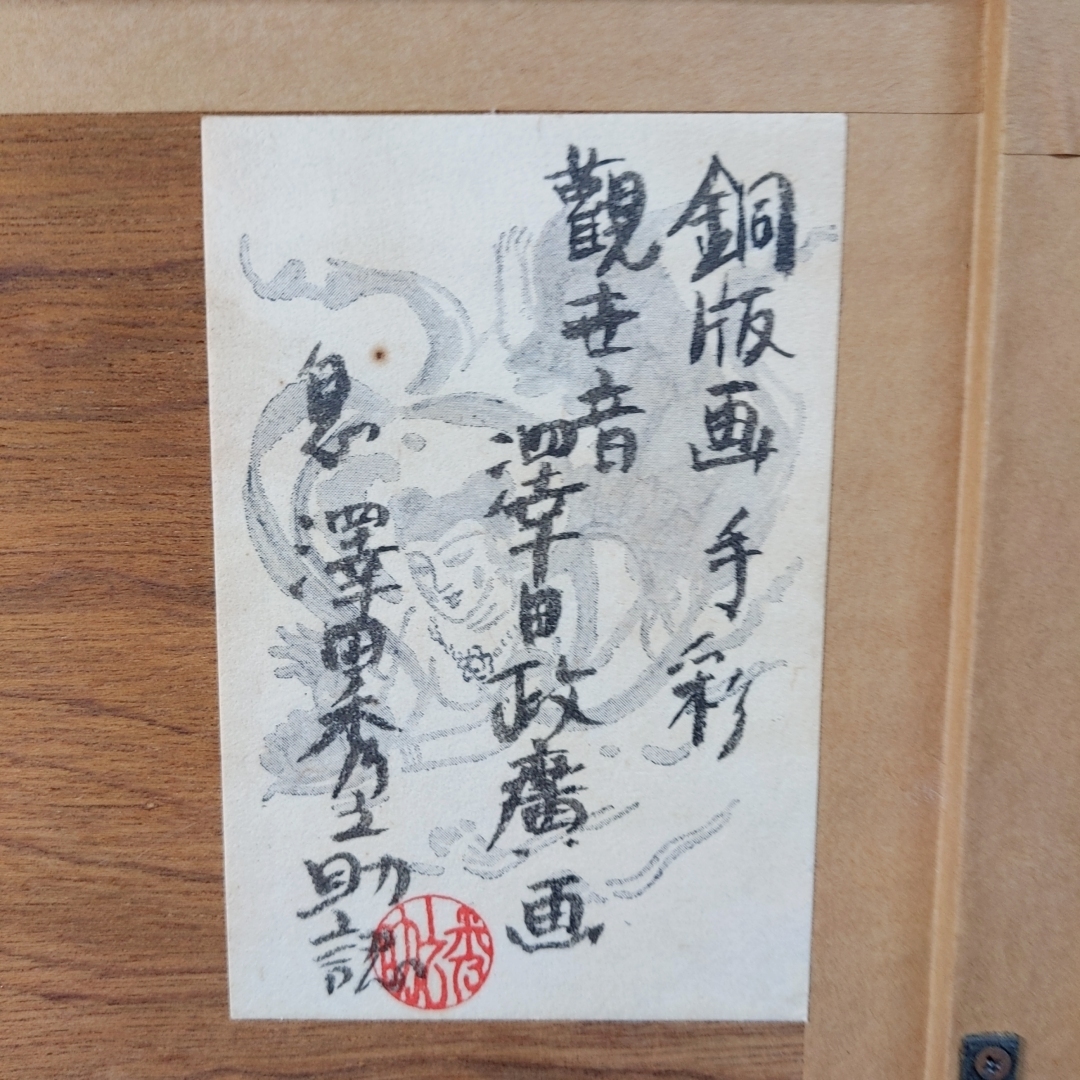 銅版画 手彩
觀世音
澤田政廣画
息 澤田秀之助認
秀之助